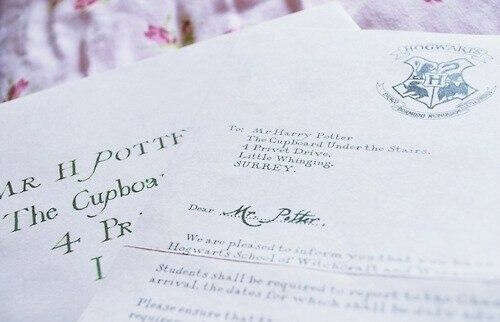 MR H POTTE
The Cupboar
4 PR
I
HOGWARTS
H
To: Mr Harry Potter
The Cupboard Under the Stairs,
4 Privet Drive,
Little Whinging,
SURREY.
Dear Mr. Potter,
We are pleased to inform you that you
Hogwarts School of Witchcraft and
Students shall be required to report to the
arrival, the dates for which shall be
Please ensure that